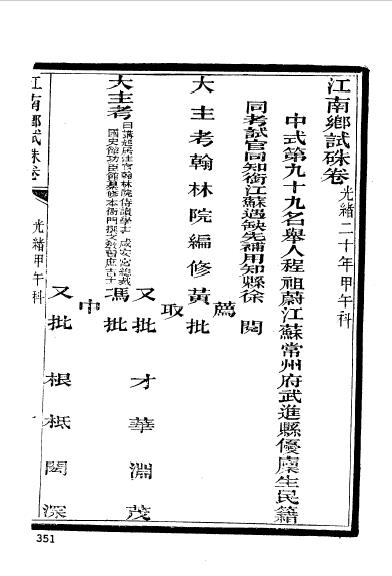 江南鄉試硃卷 光緒二十年甲午科
中式第九十九名舉人程祖蔚江蘇常州府武進縣優廩生民籍
同考試官同知銜江蘇遇缺先補用知縣徐 閱
薦
大主考翰林院編修黃批
取
又批 才華淵茂
大主考日講起居注官翰林院侍讀學士咸安宮總裁國史館功臣館纂修本衙門撰文教習庶吉士馮批
中
又批 根柢閎深
江南鄉試硃卷 光緒甲午科 一
351